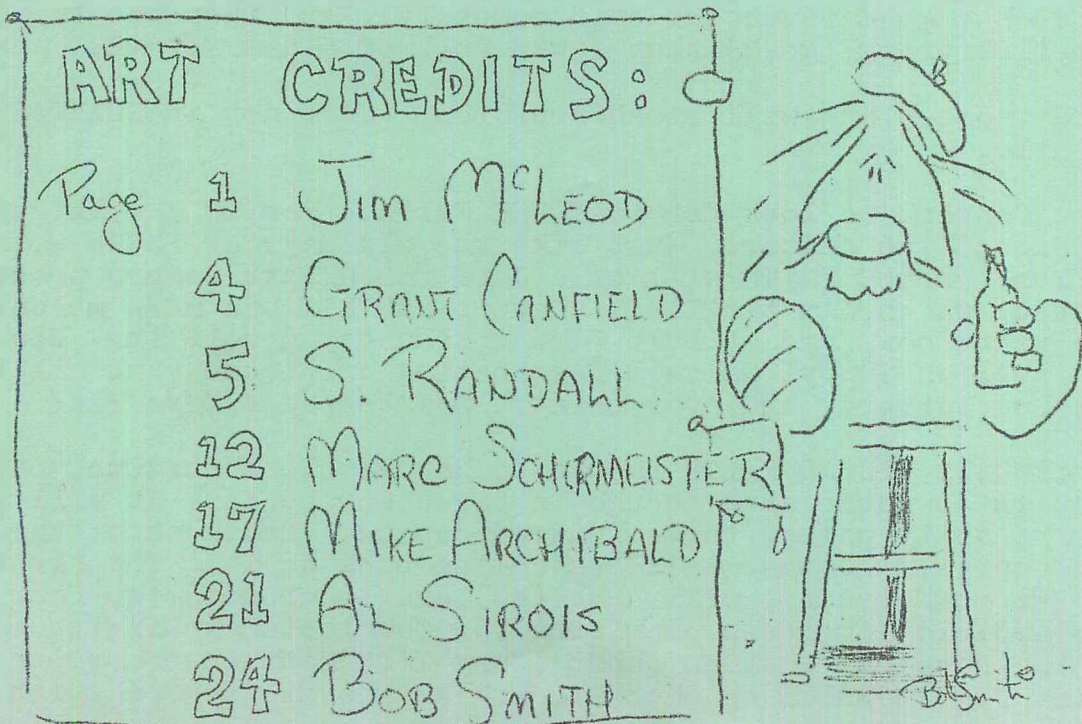 ART CREDITS:
Page 1 Jim McLEOD
4 GRANT CANFIELD
5 S. RANDALL
12 MARC SCHIRMEISTER
17 MIKE ARCHIBALD
21 AL SIROIS
24 BOB SMITH
BobSmith